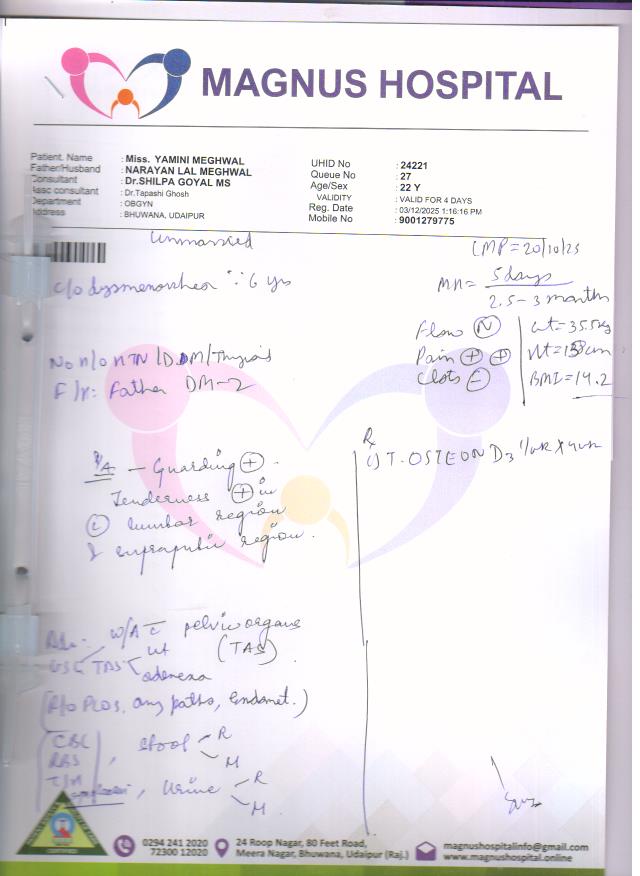 MAGNUS HOSPITAL
Patient. Name : Miss. YAMINI MEGHWAL
Father/Husband : NARAYAN LAL MEGHWAL
Consultant : Dr.SHILPA GOYAL MS
Assc consultant : Dr.Tapashi Ghosh
Department : OBGYN
Address : BHUWANA, UDAIPUR
UHID No : 24221
Queue No : 27
Age/Sex : 22 Y
VALIDITY : VALID FOR 4 DAYS
Reg. Date : 03/12/2025 1:16:16 PM
Mobile No : 9001279775
Unmarried
LMP = 20/10/25
c/o dysmenorrhea ∵ 6 yrs
MH = 5 days
2.5-3 months
Flow N
Pain + +
Clots -
wt = 35.5kg
Ht = 158cm
BMI = 14.2
No h/o HTN/DM/Thyroid
F/H: Father DM-2
P/A - Guarding +
Tenderness + in
L lumbar region
& suprapubic region.
Rx
1) T. OSTEON D3
W/A c pelvic organs
USG TAS ut (TAS)
adenexa
(R/o PCOS, any patho, Endomet.)
CBC
RBS
Stool R
M
Urine R
M
0294 241 2020
72300 12020
24 Roop Nagar, 80 Feet Road,
Meera Nagar, Bhuwana, Udaipur (Raj.)
magnushospitalinfo@gmail.com
www.magnushospital.online